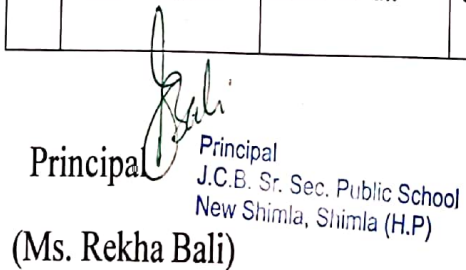 Bali
Principal
Principal
J.C.B. Sr. Sec. Public School
New Shimla, Shimla (H.P)
(Ms. Rekha Bali)